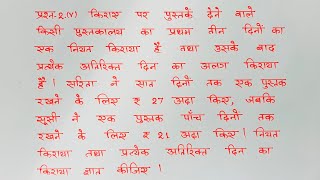 प्रश्न-2.(iv) किराए पर पुस्तकें देने वाले
किसी पुस्तकालय का प्रथम तीन दिनों का
एक नियत किराया है तथा उसके बाद
प्रत्येक अतिरिक्त दिन का अलग किराया
है। सरिता ने सात दिनों तक एक पुस्तक
रखने के लिए ₹ 27 अदा किए, जबकि
सूसी ने एक पुस्तक पाँच दिनों तक
रखने के लिए ₹ 21 अदा किए। नियत
किराया तथा प्रत्येक अतिरिक्त दिन का
किराया ज्ञात कीजिए।